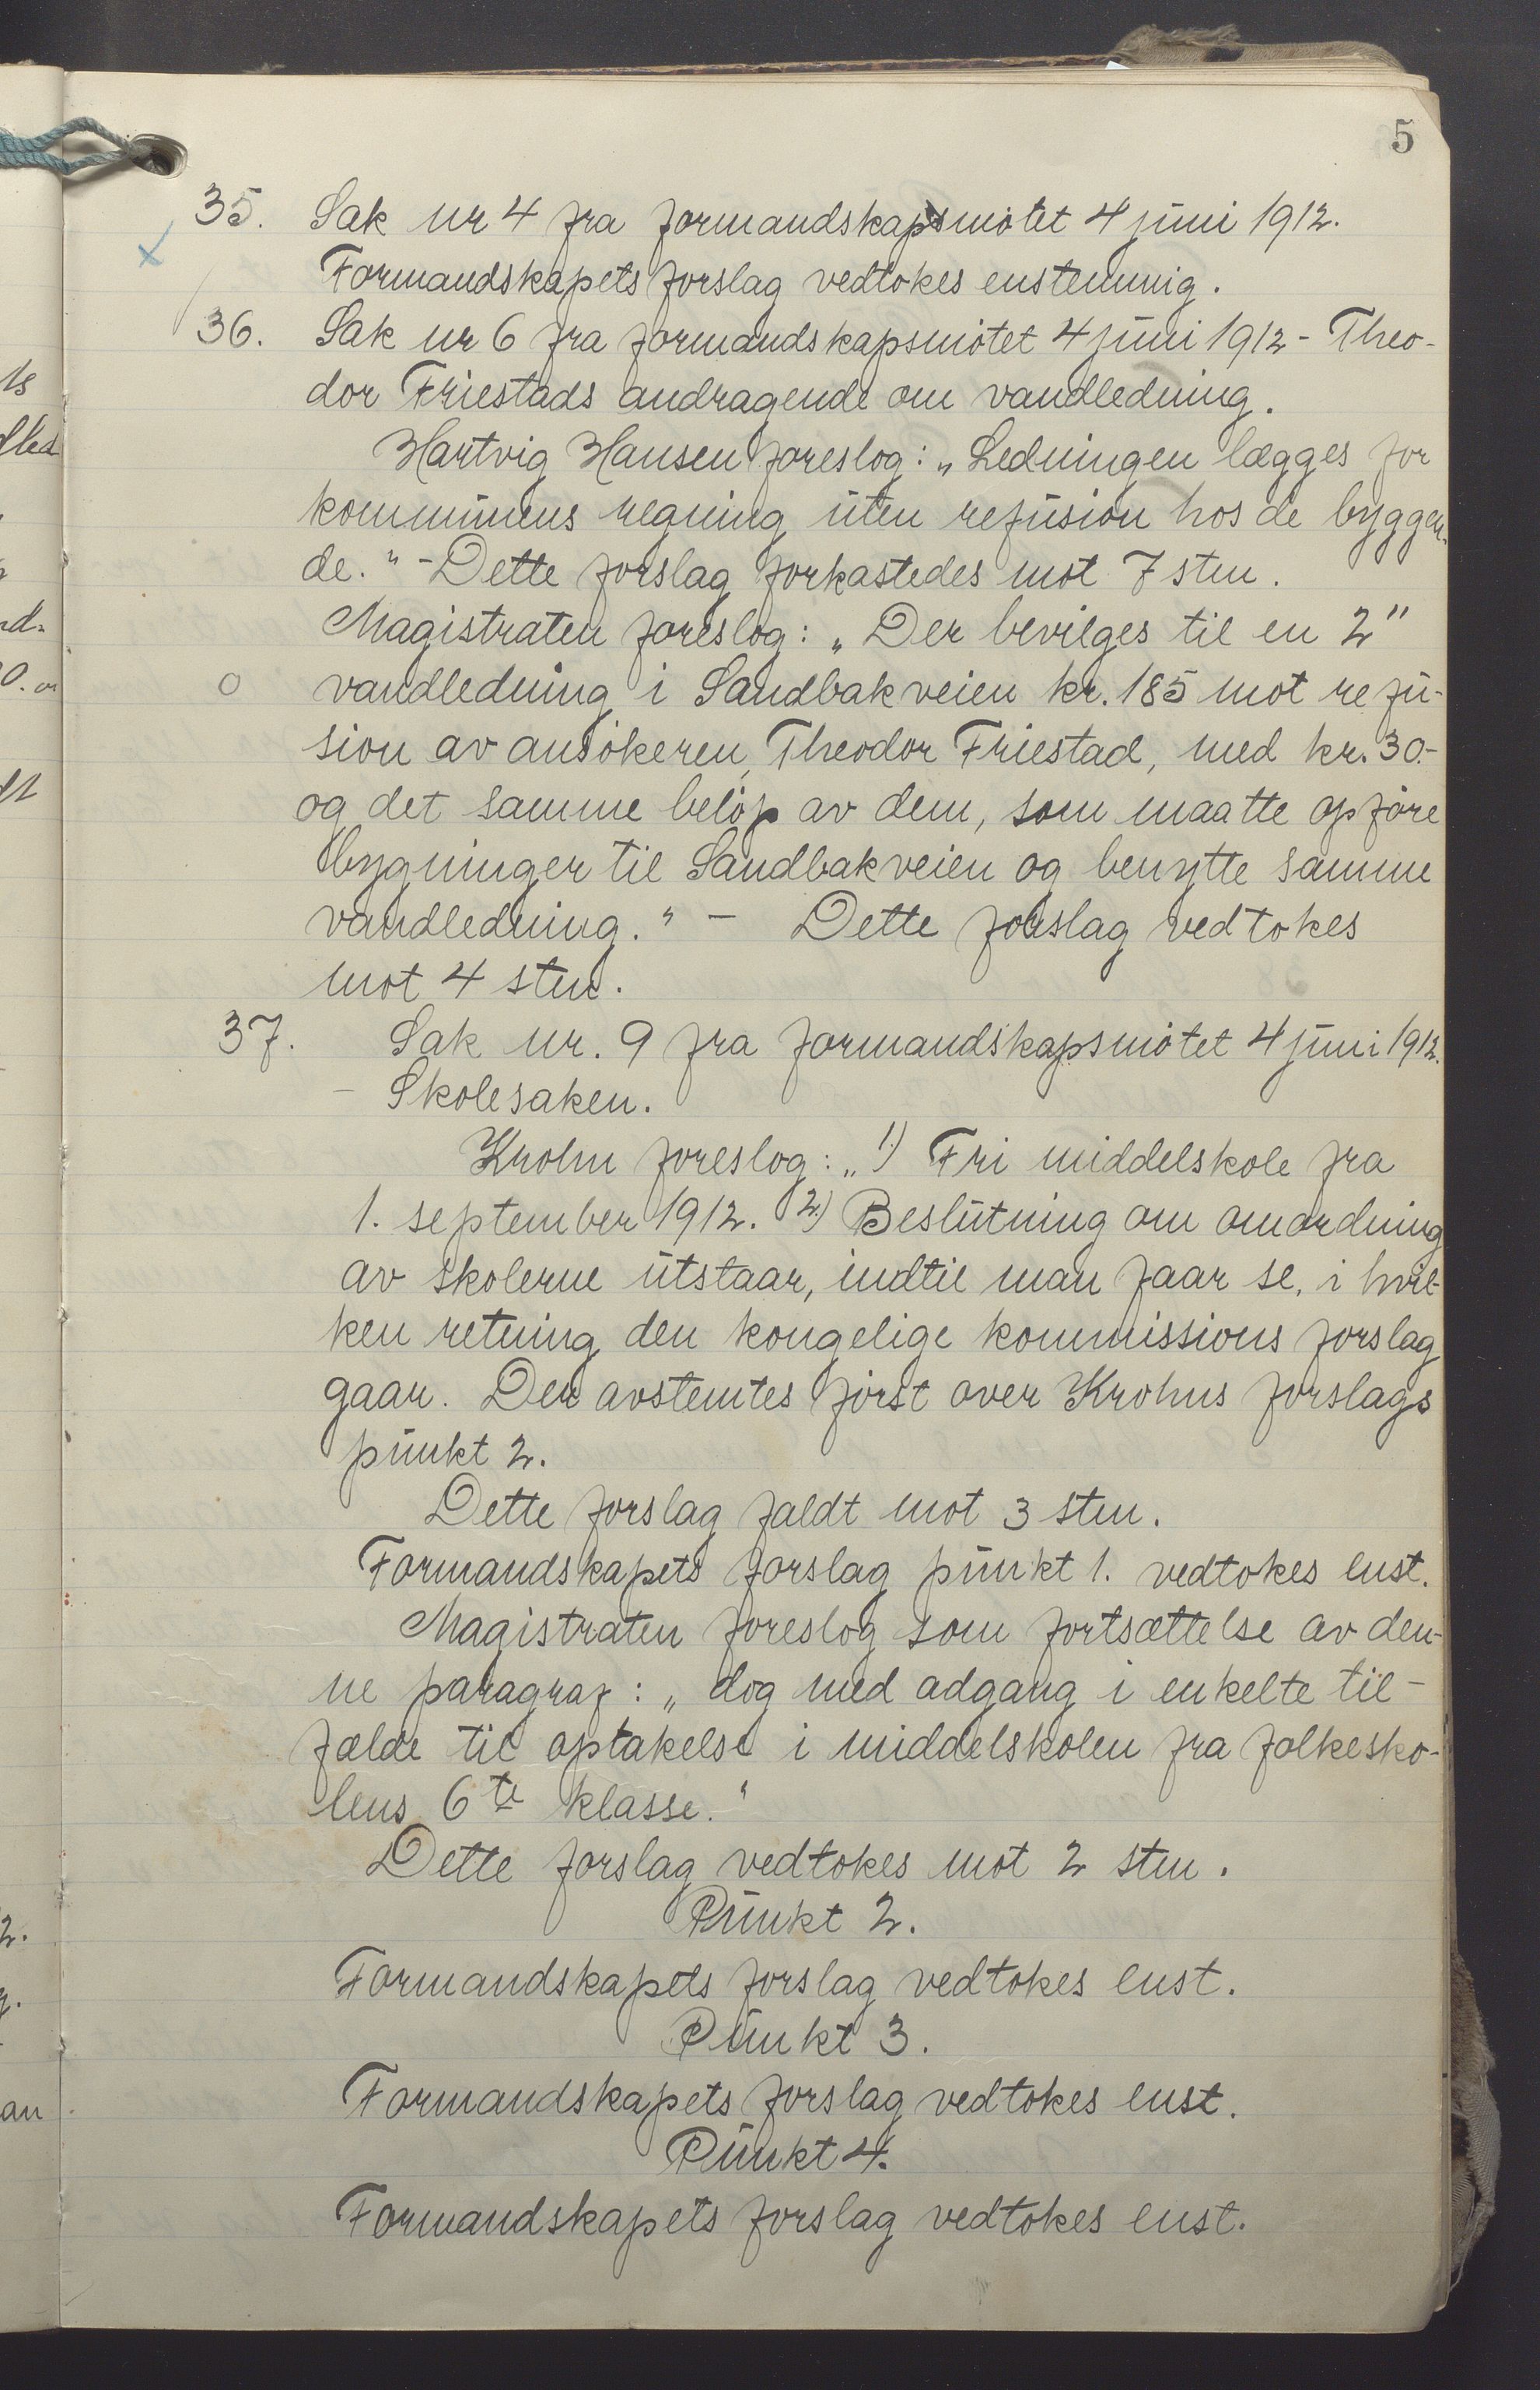 5
35. Sak nr 4 fra formandskapsmøtet 4 juni 1912.
Formandskapets forslag vedtokes enstemmig.
36. Sak nr 6 fra formandskapsmøtet 4 juni 1912 - Theo-
dor Friestads andragende om vandledning.
Hartvig Hansen foreslog: „Ledningen lægges for
kommunens regning uten refusion hos de byggen-
de." - Dette forslag forkastedes mot 7 stm.
Magistraten foreslog: „Der bevilges til en 2"
o vandledning i Sandbakveien kr. 185 mot refu-
sion av ansøkeren, Theodor Friestad, med kr. 30.-
og det samme beløp av dem, som maatte opføre
bygninger til Sandbakveien og benytte samme
vandledning." - Dette forslag vedtokes
mot 4 stm.
37. Sak nr. 9 fra formandskapsmøtet 4 juni 1912.
- Skolesaken.
Krohn foreslog: „1) Fri middelskole fra
1. september 1912. 2) Beslutning om omordning
av skolerne utstaar, indtil man faar se, i hvil-
ken retning den kongelige kommissions forslag
gaar. Der avstemtes først over Krohns forslags
punkt 2.
Dette forslag faldt mot 3 stm.
Formandskapets forslag punkt 1. vedtokes enst.
Magistraten foreslog som fortsættelse av den-
ne paragraf: „dog med adgang i enkelte til-
fælde til optakelse i middelskolen fra folkesko-
lens 6te klasse."
Dette forslag vedtokes mot 2 stm.
Punkt 2.
Formandskapets forslag vedtokes enst.
Punkt 3.
Formandskapets forslag vedtokes enst.
Punkt 4.
Formandskapets forslag vedtokes enst.